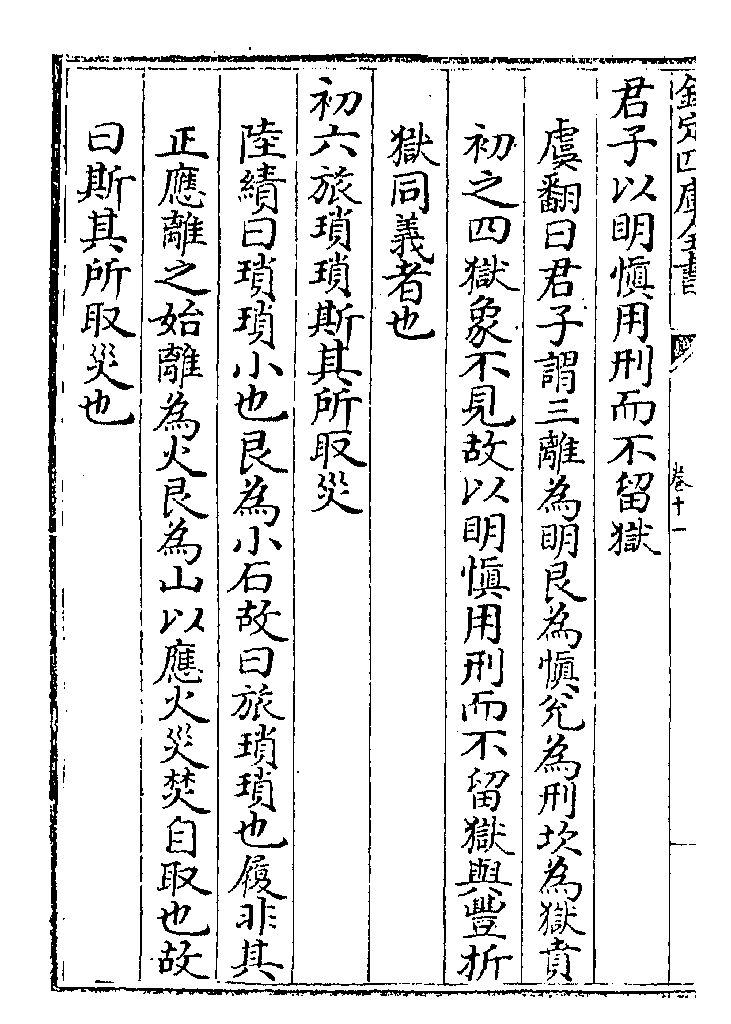 欽定四庫全書
卷十一
君子以明慎用刑而不留獄
虞翻曰君子謂三離為明艮為慎兊為刑坎為獄賁
初之四獄象不見故以明慎用刑而不留獄與豐折
獄同義者也
初六旅瑣瑣斯其所取災
陸績曰瑣瑣小也艮為小石故曰旅瑣瑣也履非其
正應離之始離為火艮為山以應火災焚自取也故
曰斯其所取災也